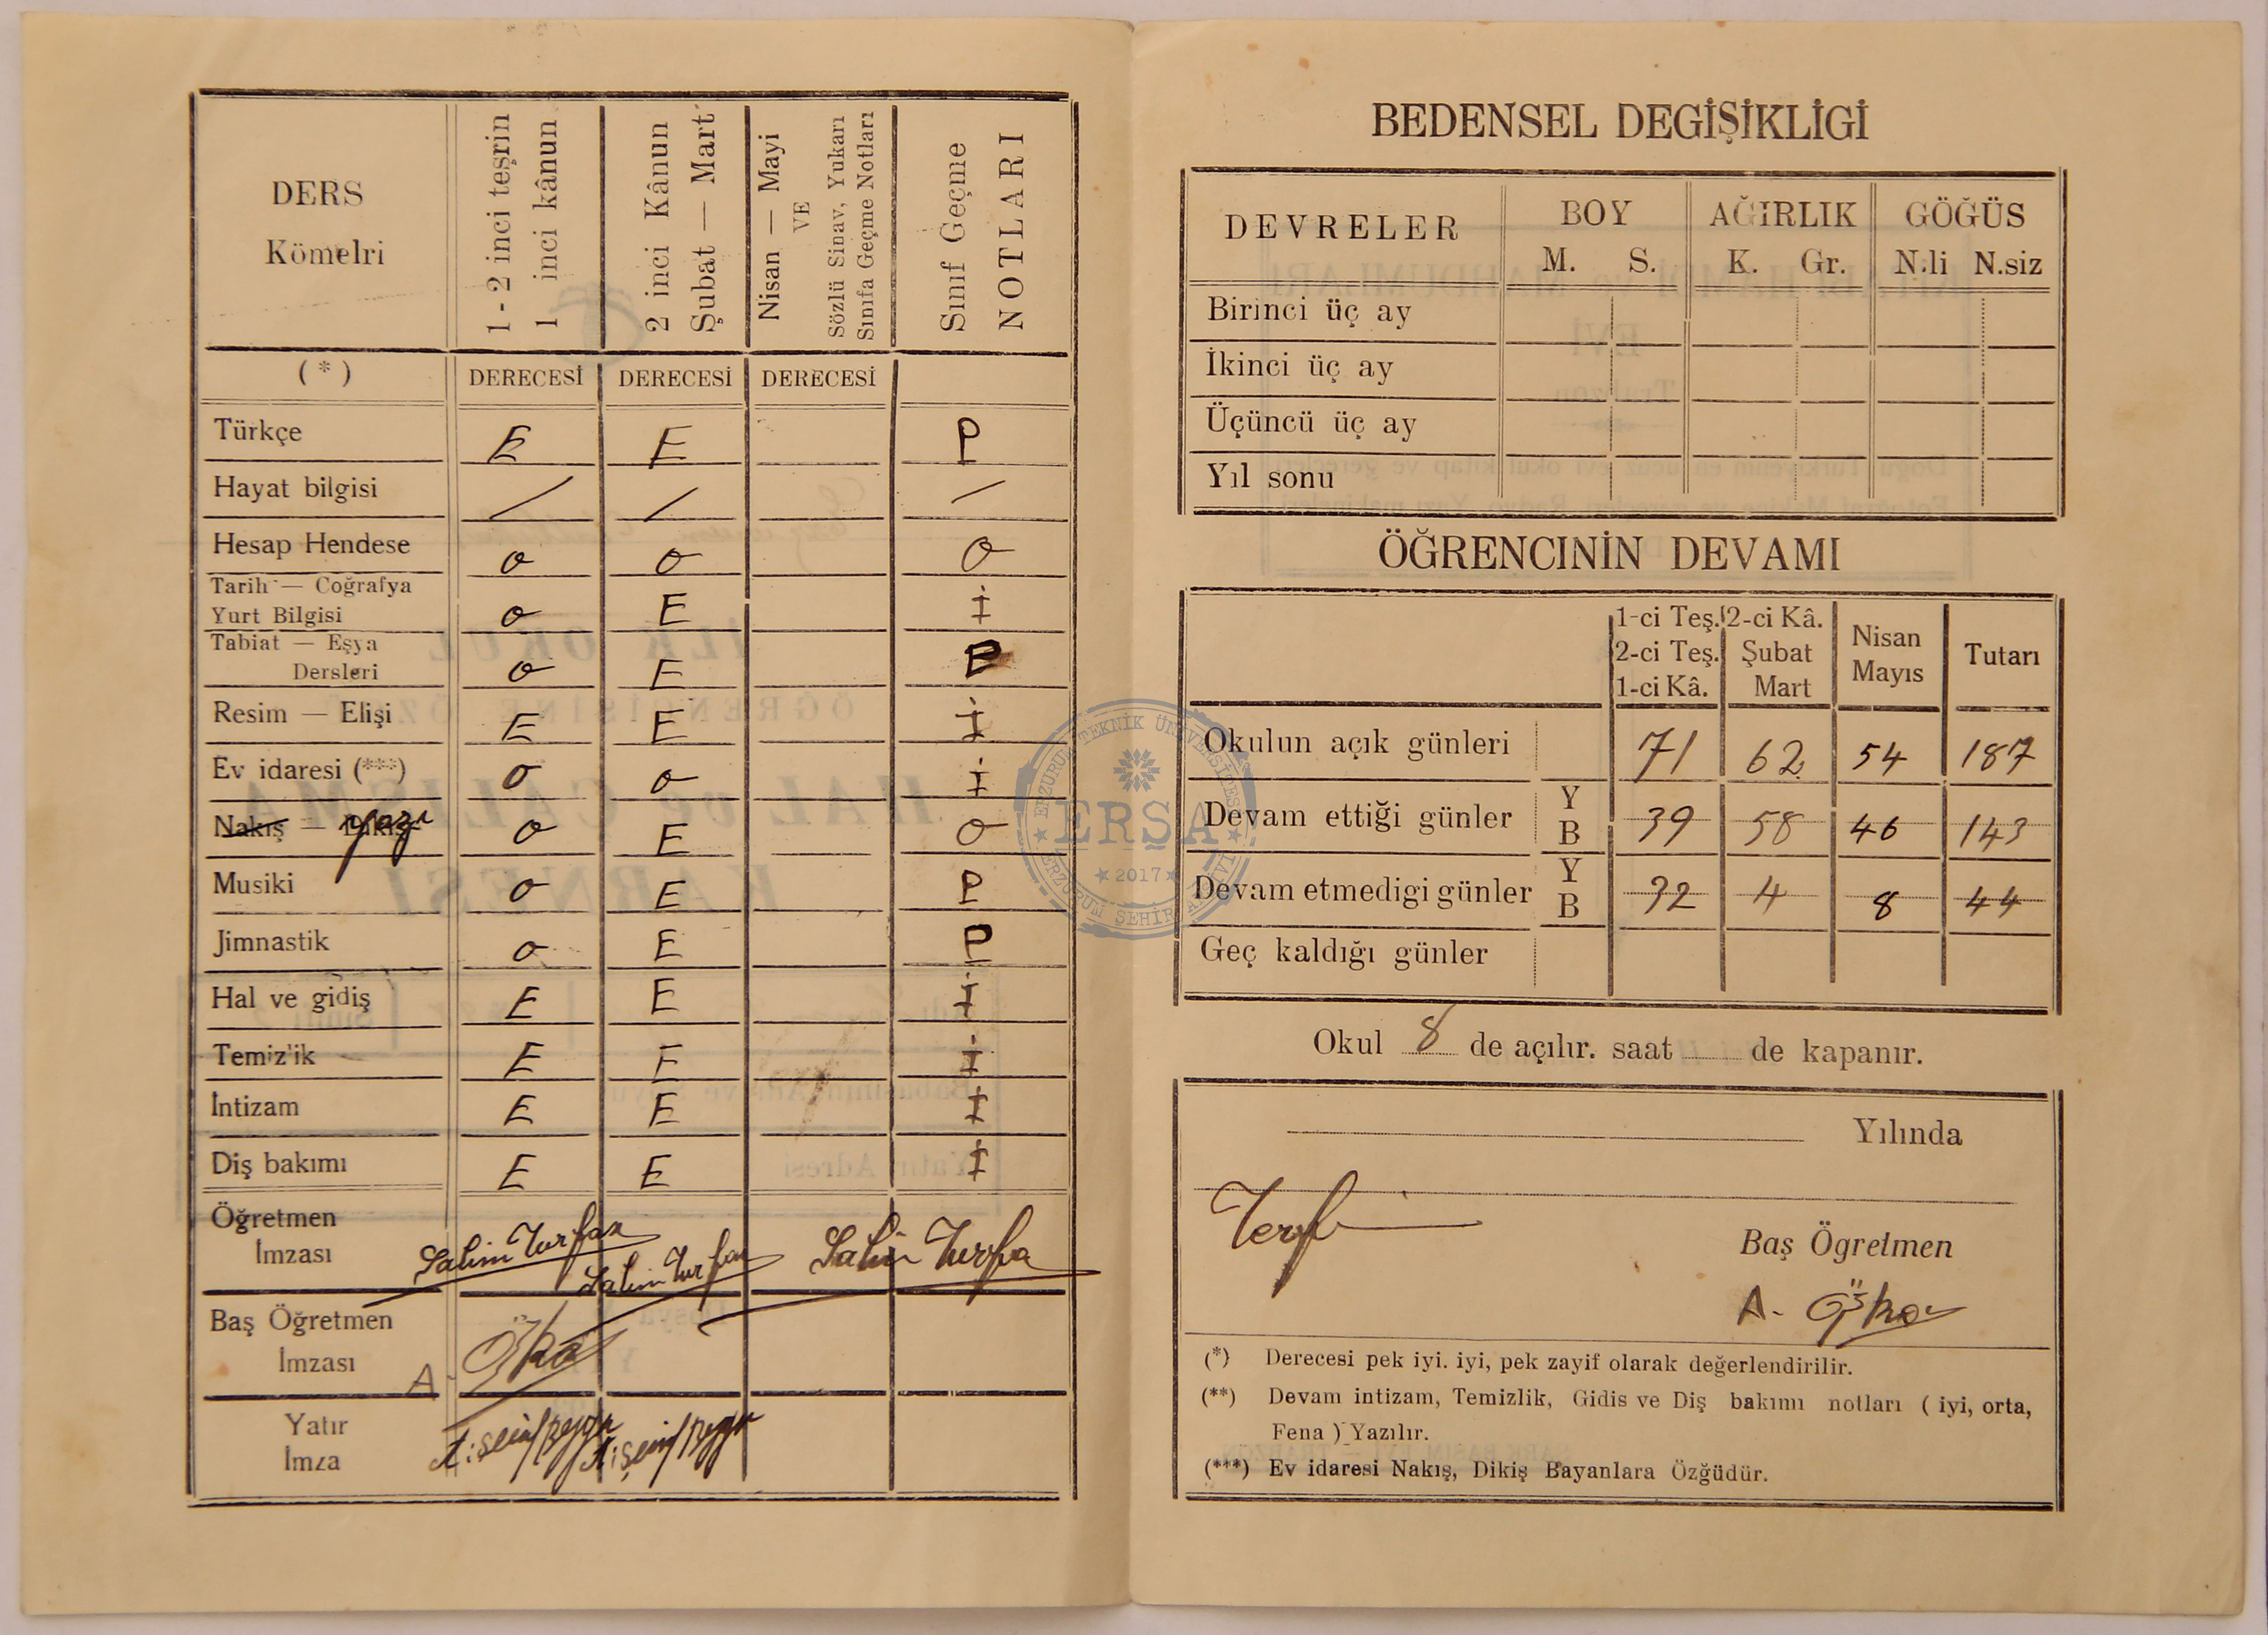 DERS
Kömelri
1 - 2 inci teşrin
1 inci kânun
2 inci Kânun
Şubat — Mart
Nisan — Mayi
VE
Sözlü Sinav, Yukarı
Sınıfa Geçme Notları
Sınıf Geçme
NOTLARI
( * ) DERECESİ DERECESİ DERECESİ
Türkçe E E P
Hayat bilgisi / / /
Hesap Hendese o o o
Tarih — Coğrafya
Yurt Bilgisi o E İ
Tabiat — Eşya
Dersleri o E P
Resim — Elişi E E İ
Ev idaresi (***) o o İ
Nakış — Dikiş yazı o E o
Musiki o E P
Jimnastik o E P
Hal ve gidiş E E İ
Temiz'ik E E İ
İntizam E E İ
Diş bakımı E E İ
Öğretmen
İmzası
Salim Turfan Salim Turfan Salim Turfa
Baş Öğretmen
İmzası
A.
Yatır
İmza
BEDENSEL DEGİŞİKLİGİ
DEVRELER BOY AĞIRLIK GÖĞÜS
M. S. K. Gr. N.li N.siz
Birinci üç ay
İkinci üç ay
Üçüncü üç ay
Yıl sonu
ÖĞRENCINİN DEVAMI
1-ci Teş. 2-ci Kâ. Nisan Tutarı
2-ci Teş. Şubat Mayıs
1-ci Kâ. Mart
Okulun açık günleri 71 62 54 187
Devam ettiği günler Y B 39 58 46 143
Devam etmedigi günler Y B 32 4 8 44
Geç kaldığı günler
Okul 8 de açılır. saat de kapanır.
Yılında
Terfi
Baş Ögretmen
A.
(*) Derecesi pek iyi. iyi, pek zayif olarak değerlendirilir.
(**) Devam intizam, Temizlik, Gidis ve Diş bakımı notları ( iyi, orta,
Fena ) Yazılır.
(***) Ev idaresi Nakış, Dikiş Bayanlara Özğüdür.
ERZURUM TEKNİK ÜNİVERSİTESİ
ERŞA
★ 2017 ★
ERZURUM ŞEHİR ARŞİVİ